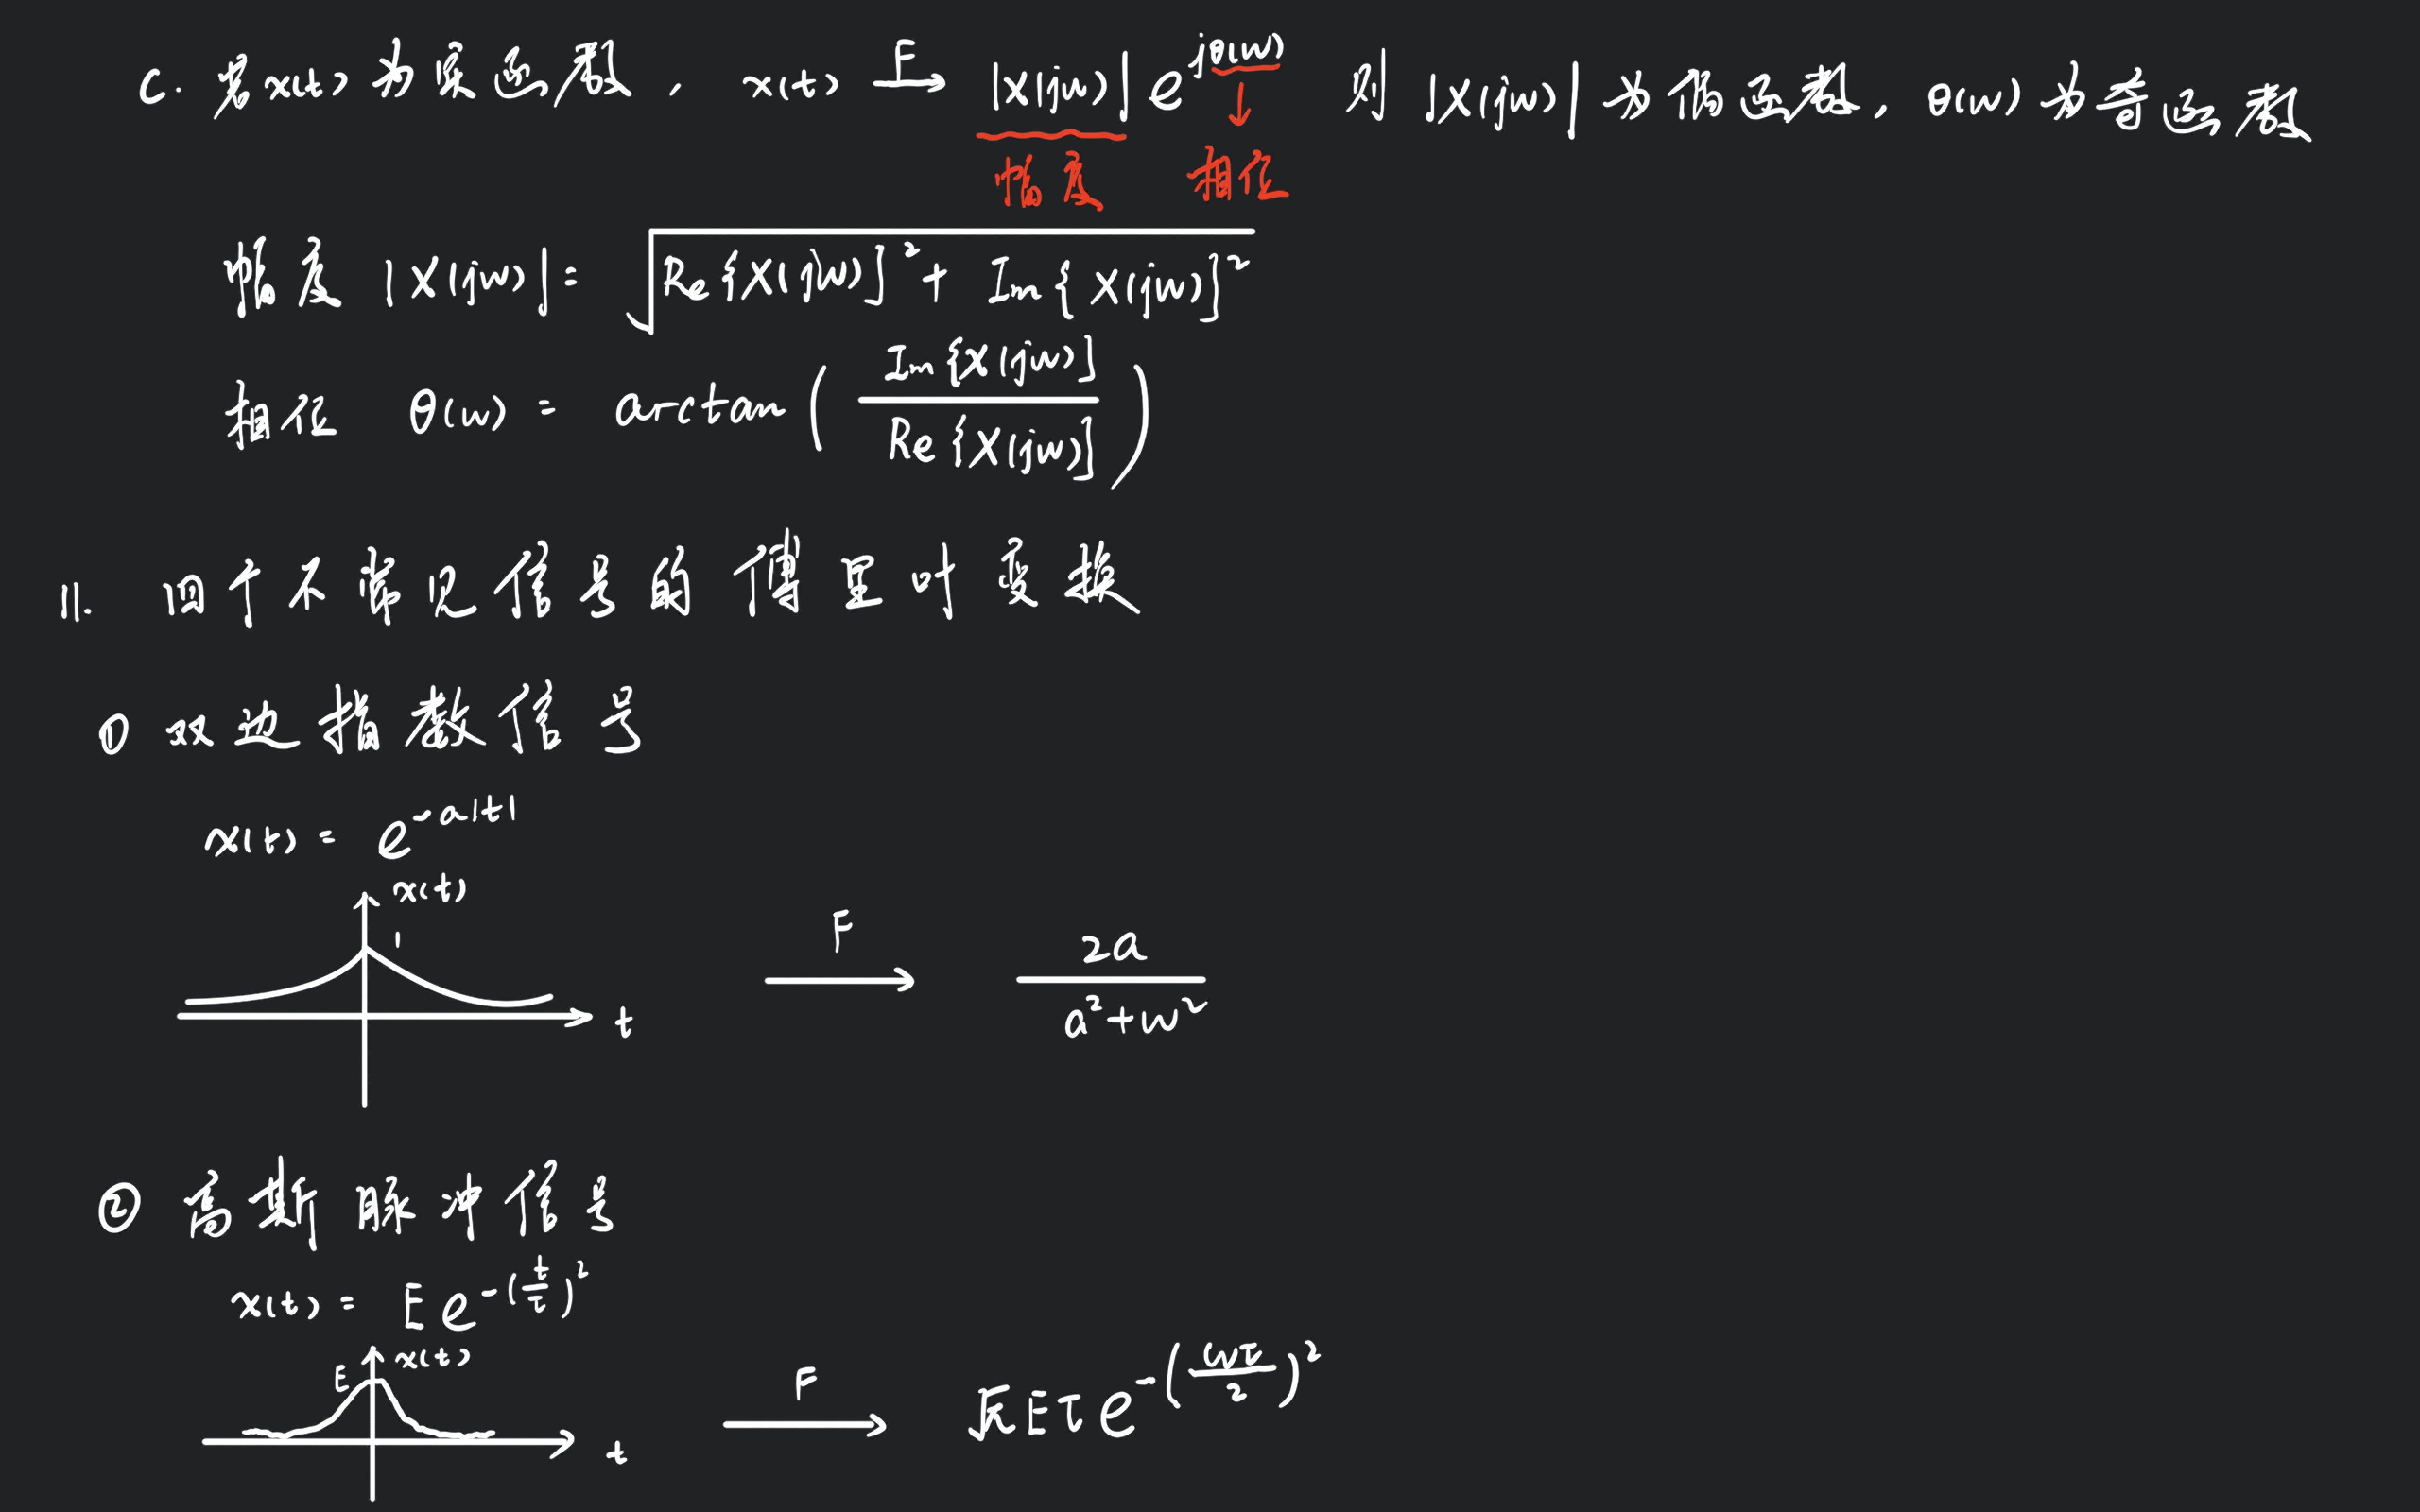 c. 若x(t)为实函数, x(t) F→ |X(jw)| e^{jθ(w)} 则 |X(jw)| 为偶函数, θ(w) 为奇函数
幅度 相位
幅度 |X(jw)| = √(Re{X(jw)}² + Im{X(jw)}²)
相位 θ(w) = arctan( Im{X(jw)} / Re{X(jw)} )
11. 四个不常见信号的傅里叶变换
① 双边指数信号
x(t) = e^{-a|t|}
x(t)
1
t
F→ 2a / (a²+w²)
② 高斯脉冲信号
x(t) = E e^{-(t/τ)²}
E x(t)
t
F→ √π E τ e^{-(wτ/2)²}